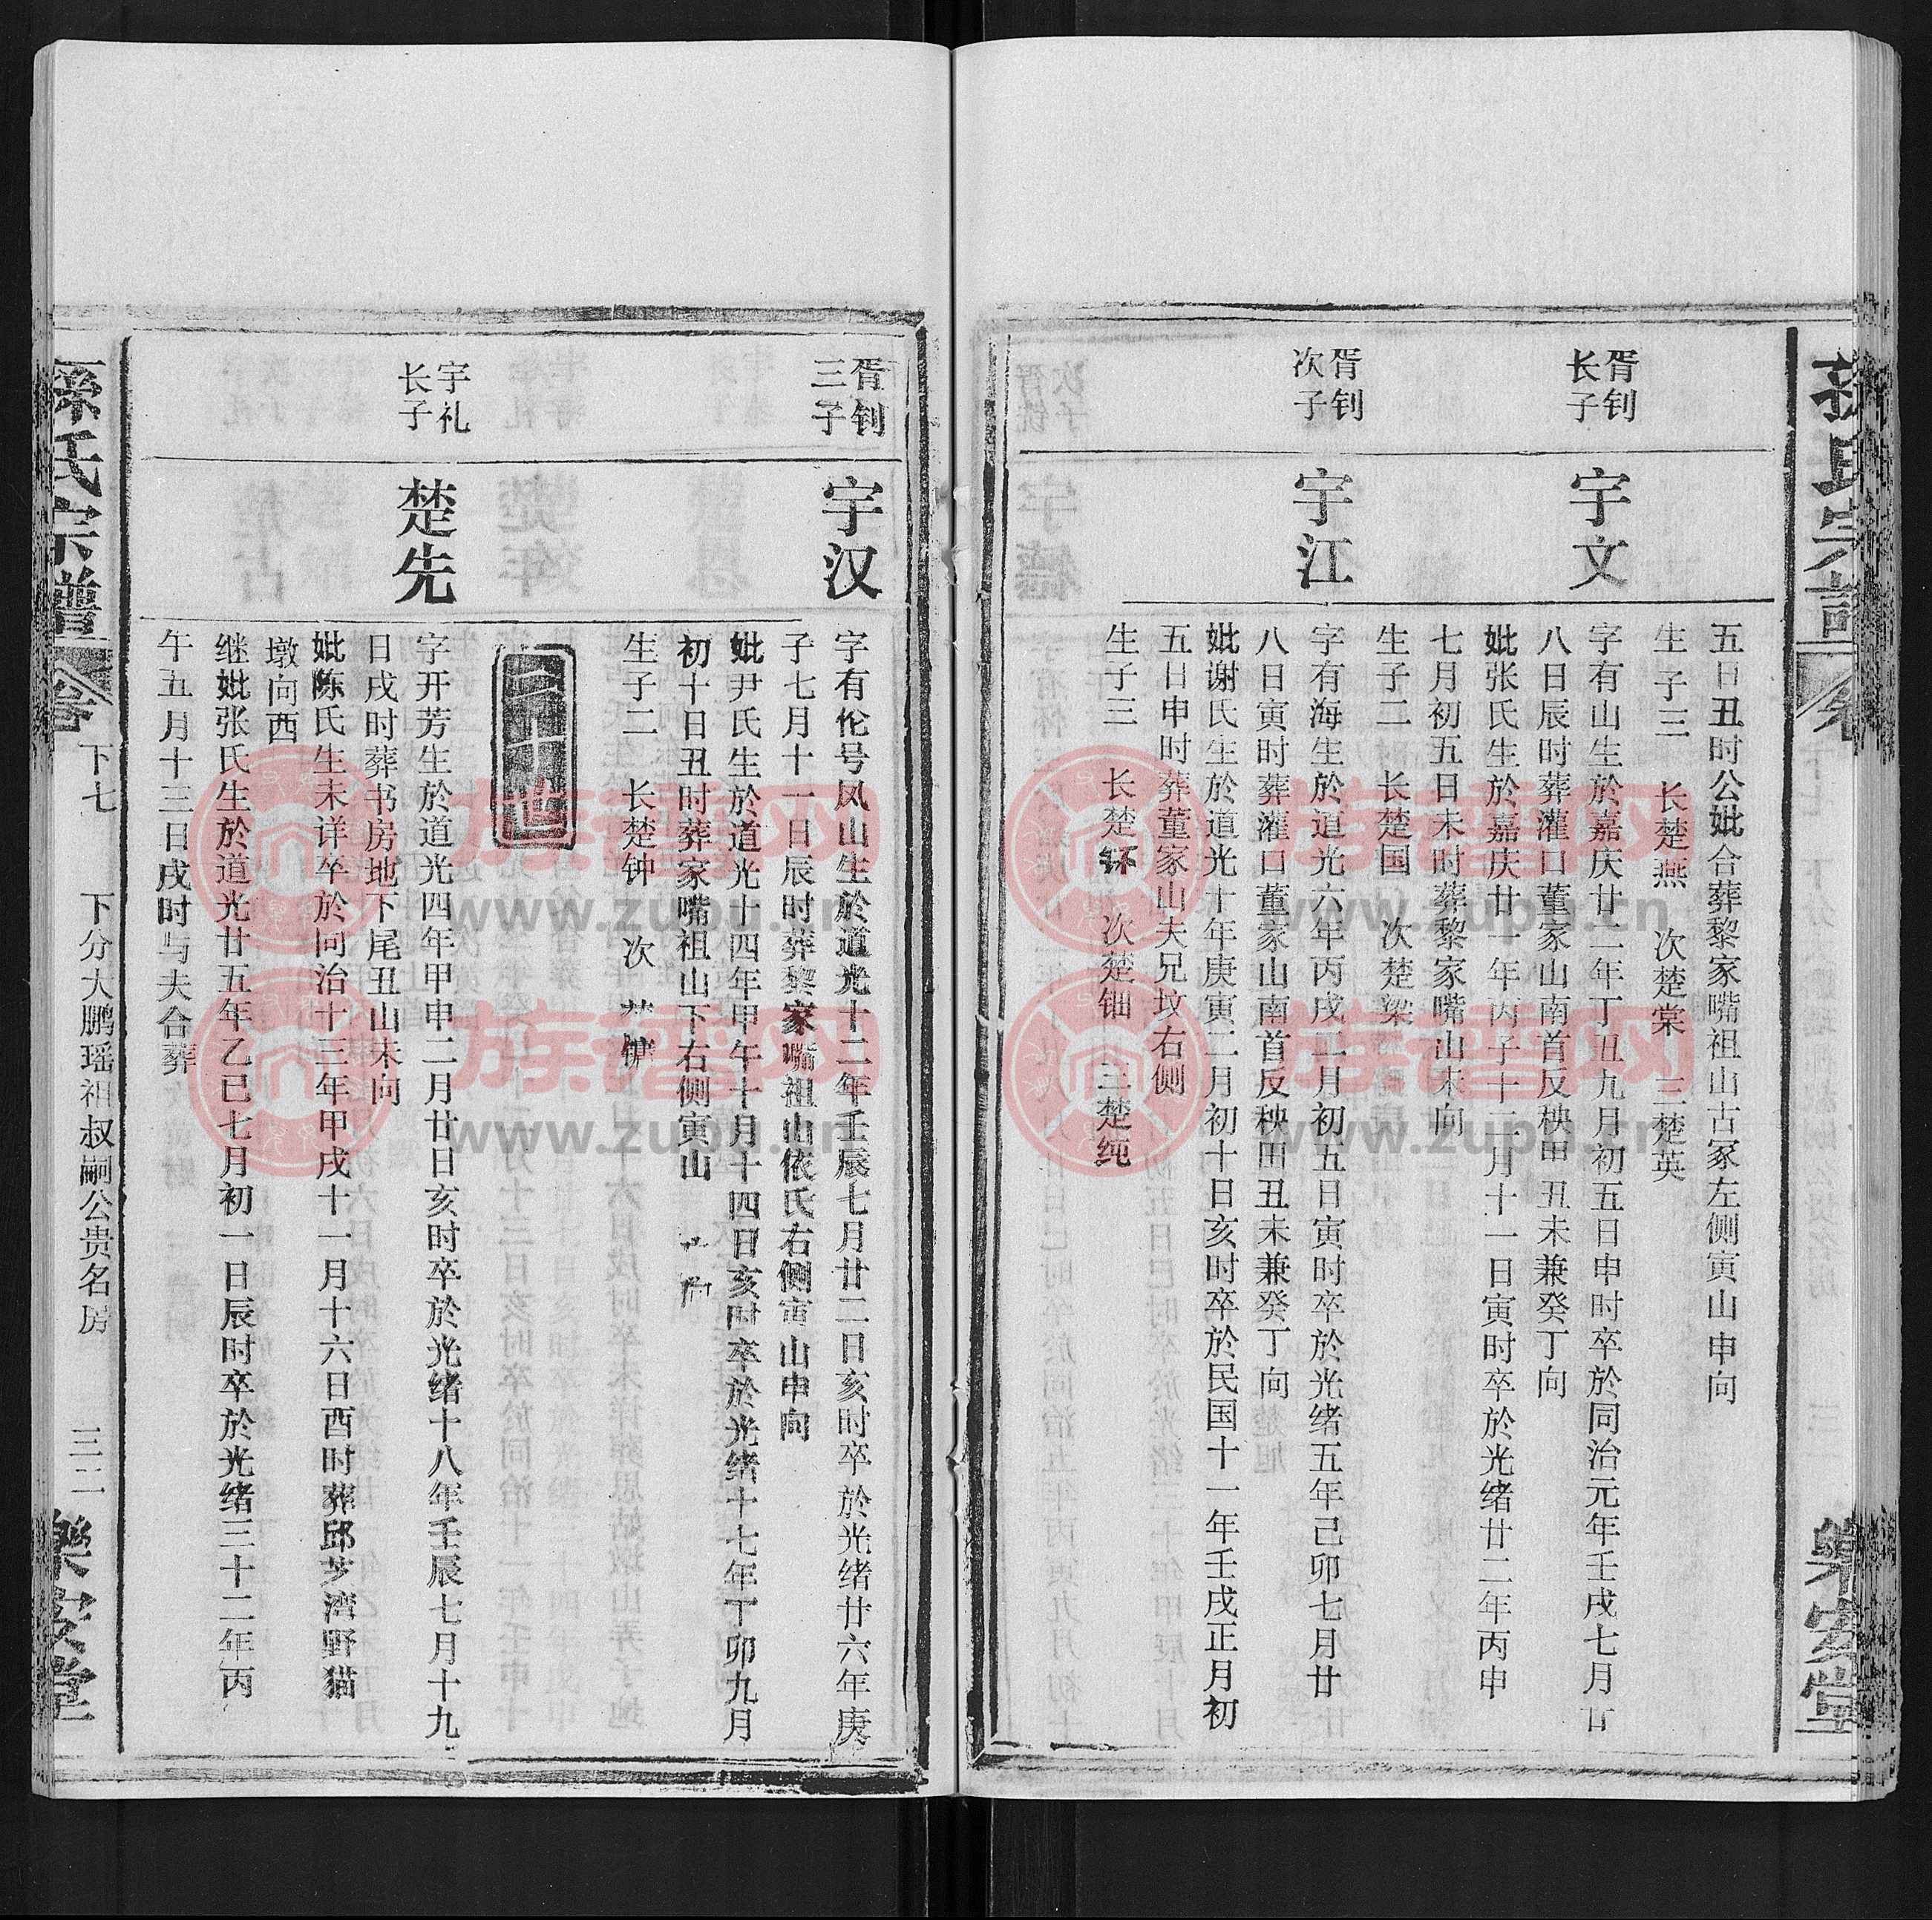 五日丑时公妣合葬黎家嘴祖山古冢左侧寅山申向
生子三 长楚燕 次楚棠 三楚英
胥钊
长子
宇文
字有山生於嘉庆廿二年丁丑九月初五日申时卒於同治元年壬戌七月廿
八日辰时葬灌口董家山南首反秧田丑未兼癸丁向
妣张氏生於嘉庆廿一年丙子十二月十一日寅时卒於光绪廿二年丙申
七月初五日未时葬黎家嘴山未向
生子二 长楚国 次楚梁
胥钊
次子
宇江
字有海生於道光六年丙戌二月初五日寅时卒於光绪五年己卯七月廿
八日寅时葬灌口董家山南首反秧田丑未兼癸丁向
妣谢氏生於道光十年庚寅二月初十日亥时卒於民国十一年壬戌正月初
五日申时葬董家山夫兄坟右侧
生子三 长楚钚 次楚铀 三楚纯
胥钊
三子
宇汉
字有伦号凤山生於道光十二年壬辰七月廿二日亥时卒於光绪廿六年庚
子七月十一日辰时葬黎家嘴祖山依氏右侧寅山申向
妣尹氏生於道光十四年甲午十月十四日亥时卒於光绪十七年丁卯九月
初十日丑时葬家嘴祖山下右侧寅山 向
生子二 长楚钟 次
二十世
宇礼
长子
楚先
字开芳生於道光四年甲申二月廿日亥时卒於光绪十八年壬辰七月十九
日戌时葬书房地下尾丑山未向
妣陈氏生未详卒於同治十三年甲戌十一月十六日酉时葬邱芝湾野猫
墩向西
继妣张氏生於道光廿五年乙巳七月初一日辰时卒於光绪三十二年丙
午五月十三日戌时与夫合葬
孫氏宗譜 卷 下七 下分大鹏瑶祖叔嗣公贵名房 三二 樂安堂
族谱网
www.zupu.cn
族谱网
www.zupu.cn
族谱网
www.zupu.cn
族谱网
www.zupu.cn